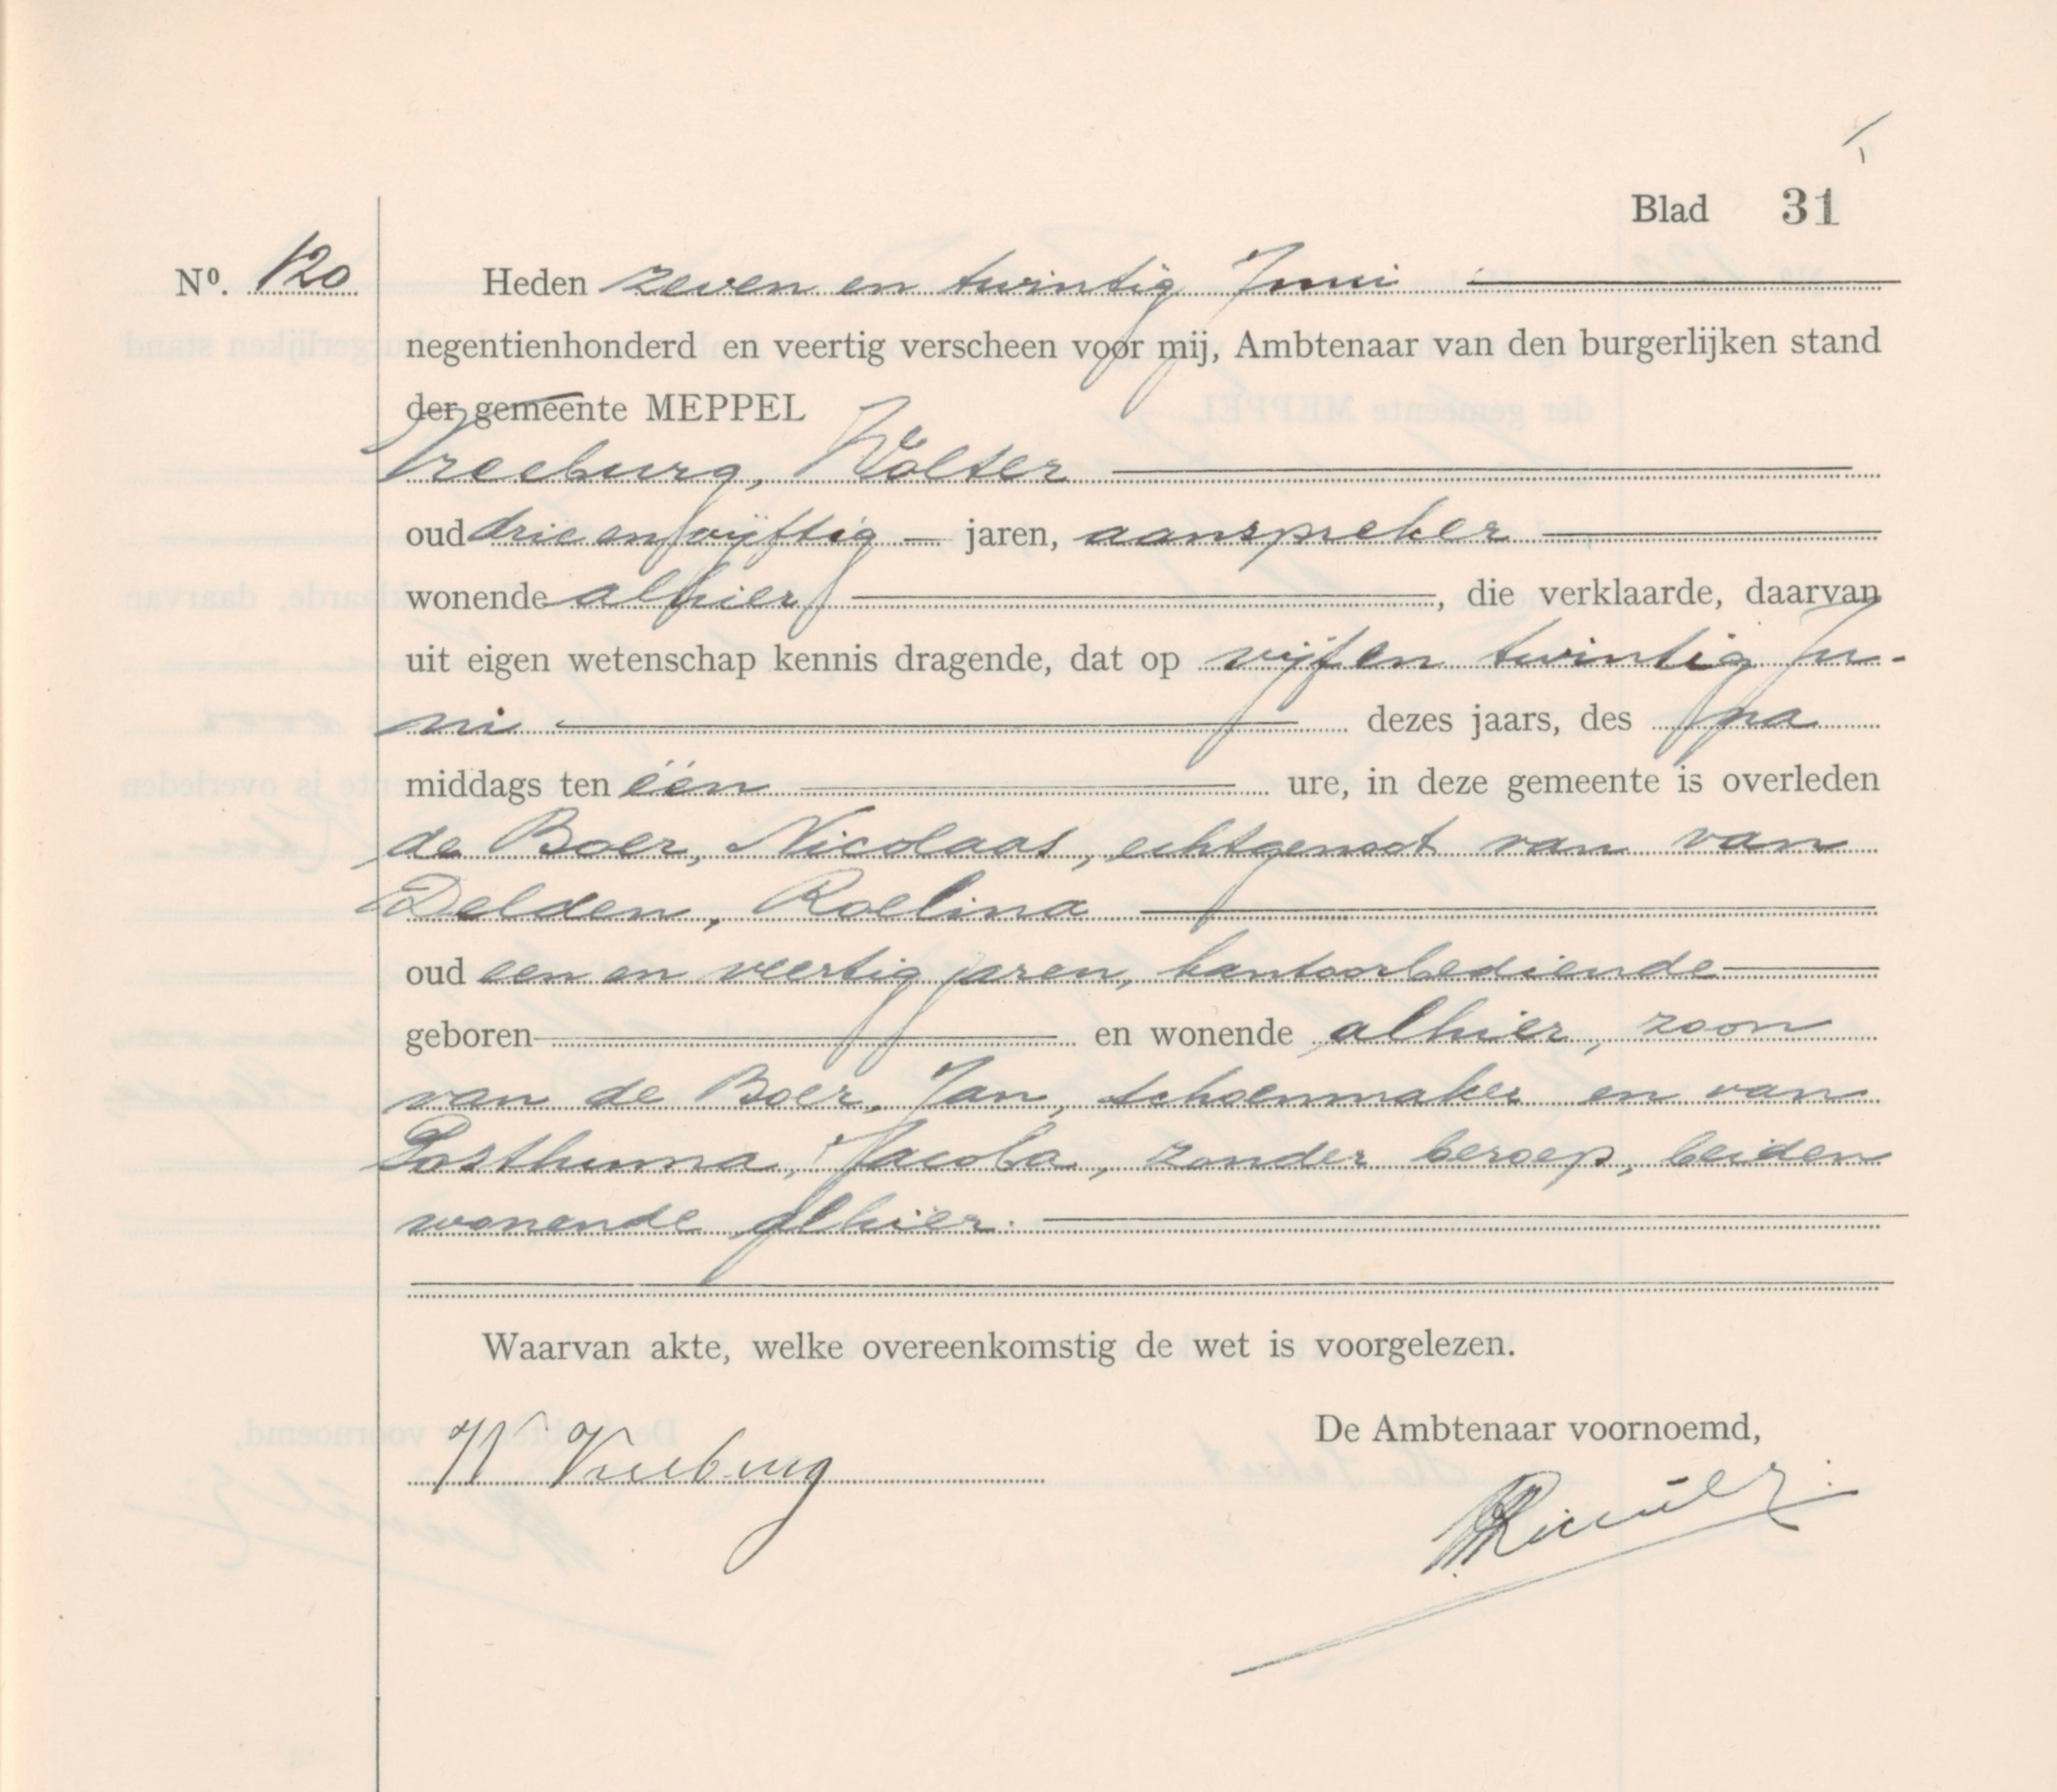 Blad 31
No. 120
Heden zeven en twintig Juni
negentienhonderd en veertig verscheen voor mij, Ambtenaar van den burgerlijken stand
der gemeente MEPPEL
Vreeburg, Wolter
oud drie en vijftig jaren, aanspreker
wonende alhier, die verklaarde, daarvan
uit eigen wetenschap kennis dragende, dat op vijf en twintig Ju-
ni dezes jaars, des na
middags ten één ure, in deze gemeente is overleden
de Boer, Nicolaas, echtgenoot van van
Delden, Roelina
oud een en veertig jaren, kantoorbediende
geboren en wonende alhier, zoon
van de Boer, Jan, schoenmaker en van
Posthuma, Jacoba, zonder beroep, beiden
wonende alhier.
Waarvan akte, welke overeenkomstig de wet is voorgelezen.
W Vreeburg
De Ambtenaar voornoemd,